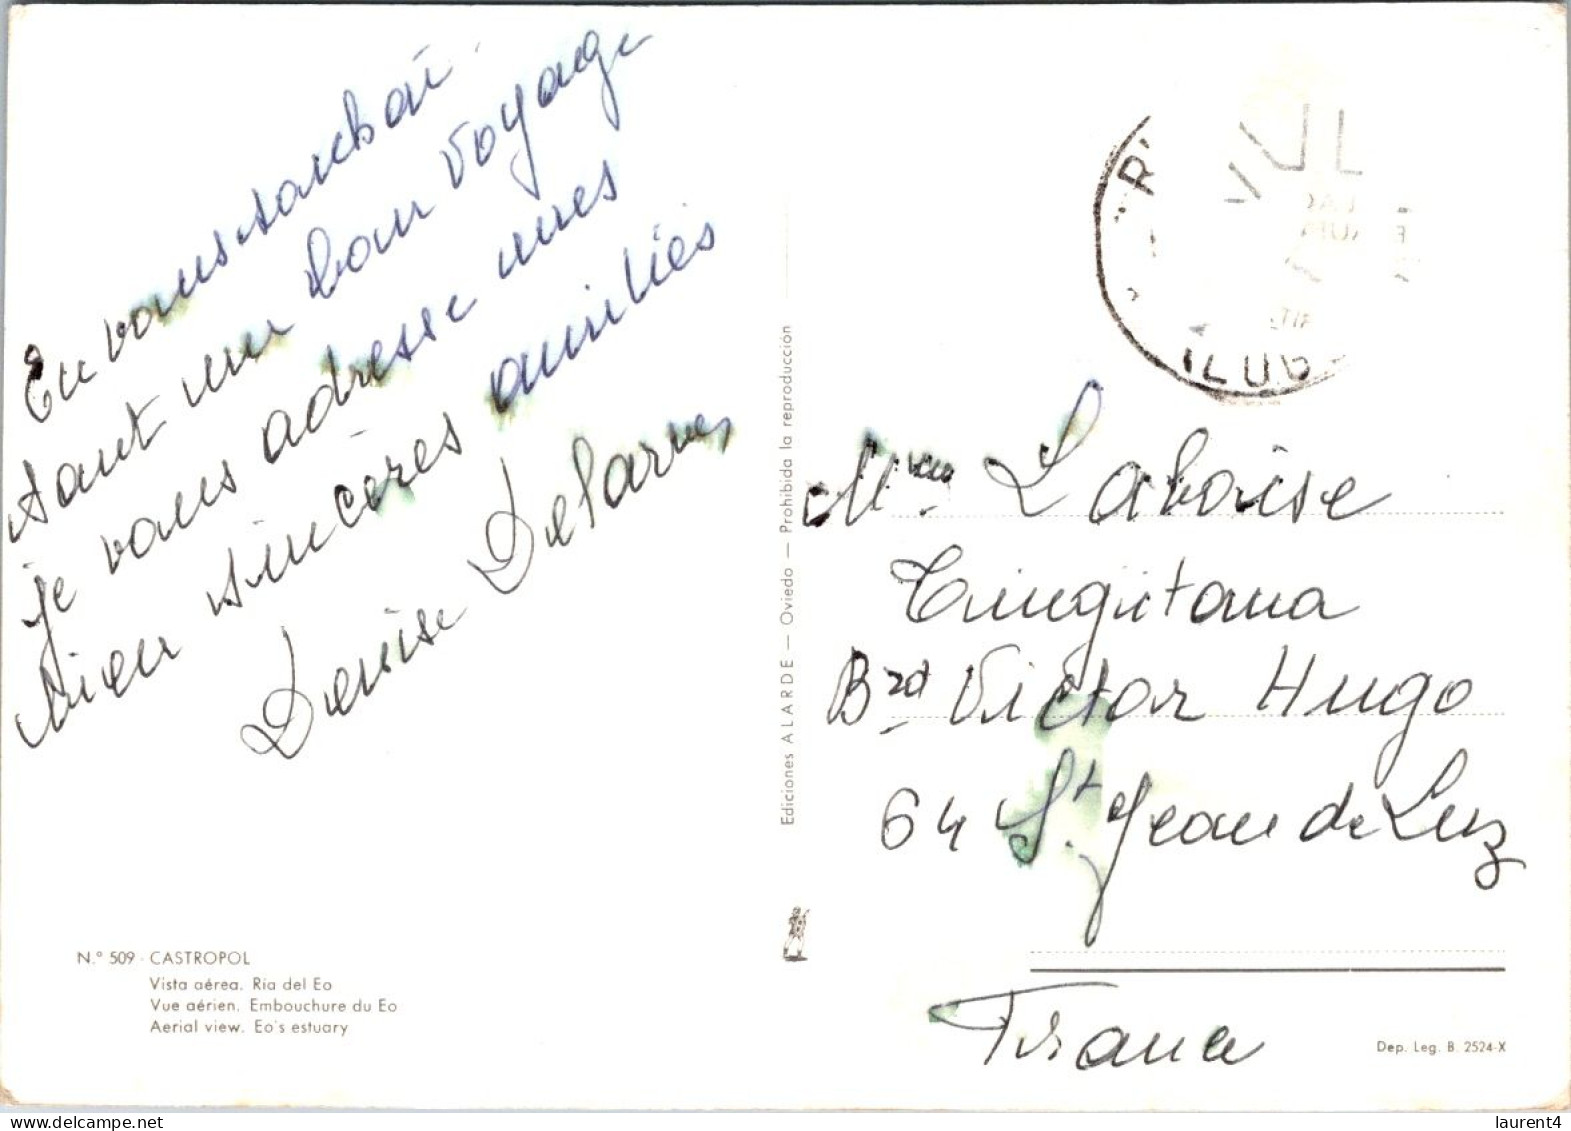 En vous souhai
tant un bon voyage
je vous adresse mes
bien sincères amitiés
Denise Delarues
N.º 509 - CASTROPOL
Vista aérea. Ría del Eo
Vue aérien. Embouchure du Eo
Aerial view. Eo's estuary
Ediciones ALARDE — Oviedo — Prohibida la reproducción
Mme Laboise
Tingitana
Brd Victor Hugo
64 St. Jean de Luz
France
Dep. Leg. B. 2524-X
laurent4